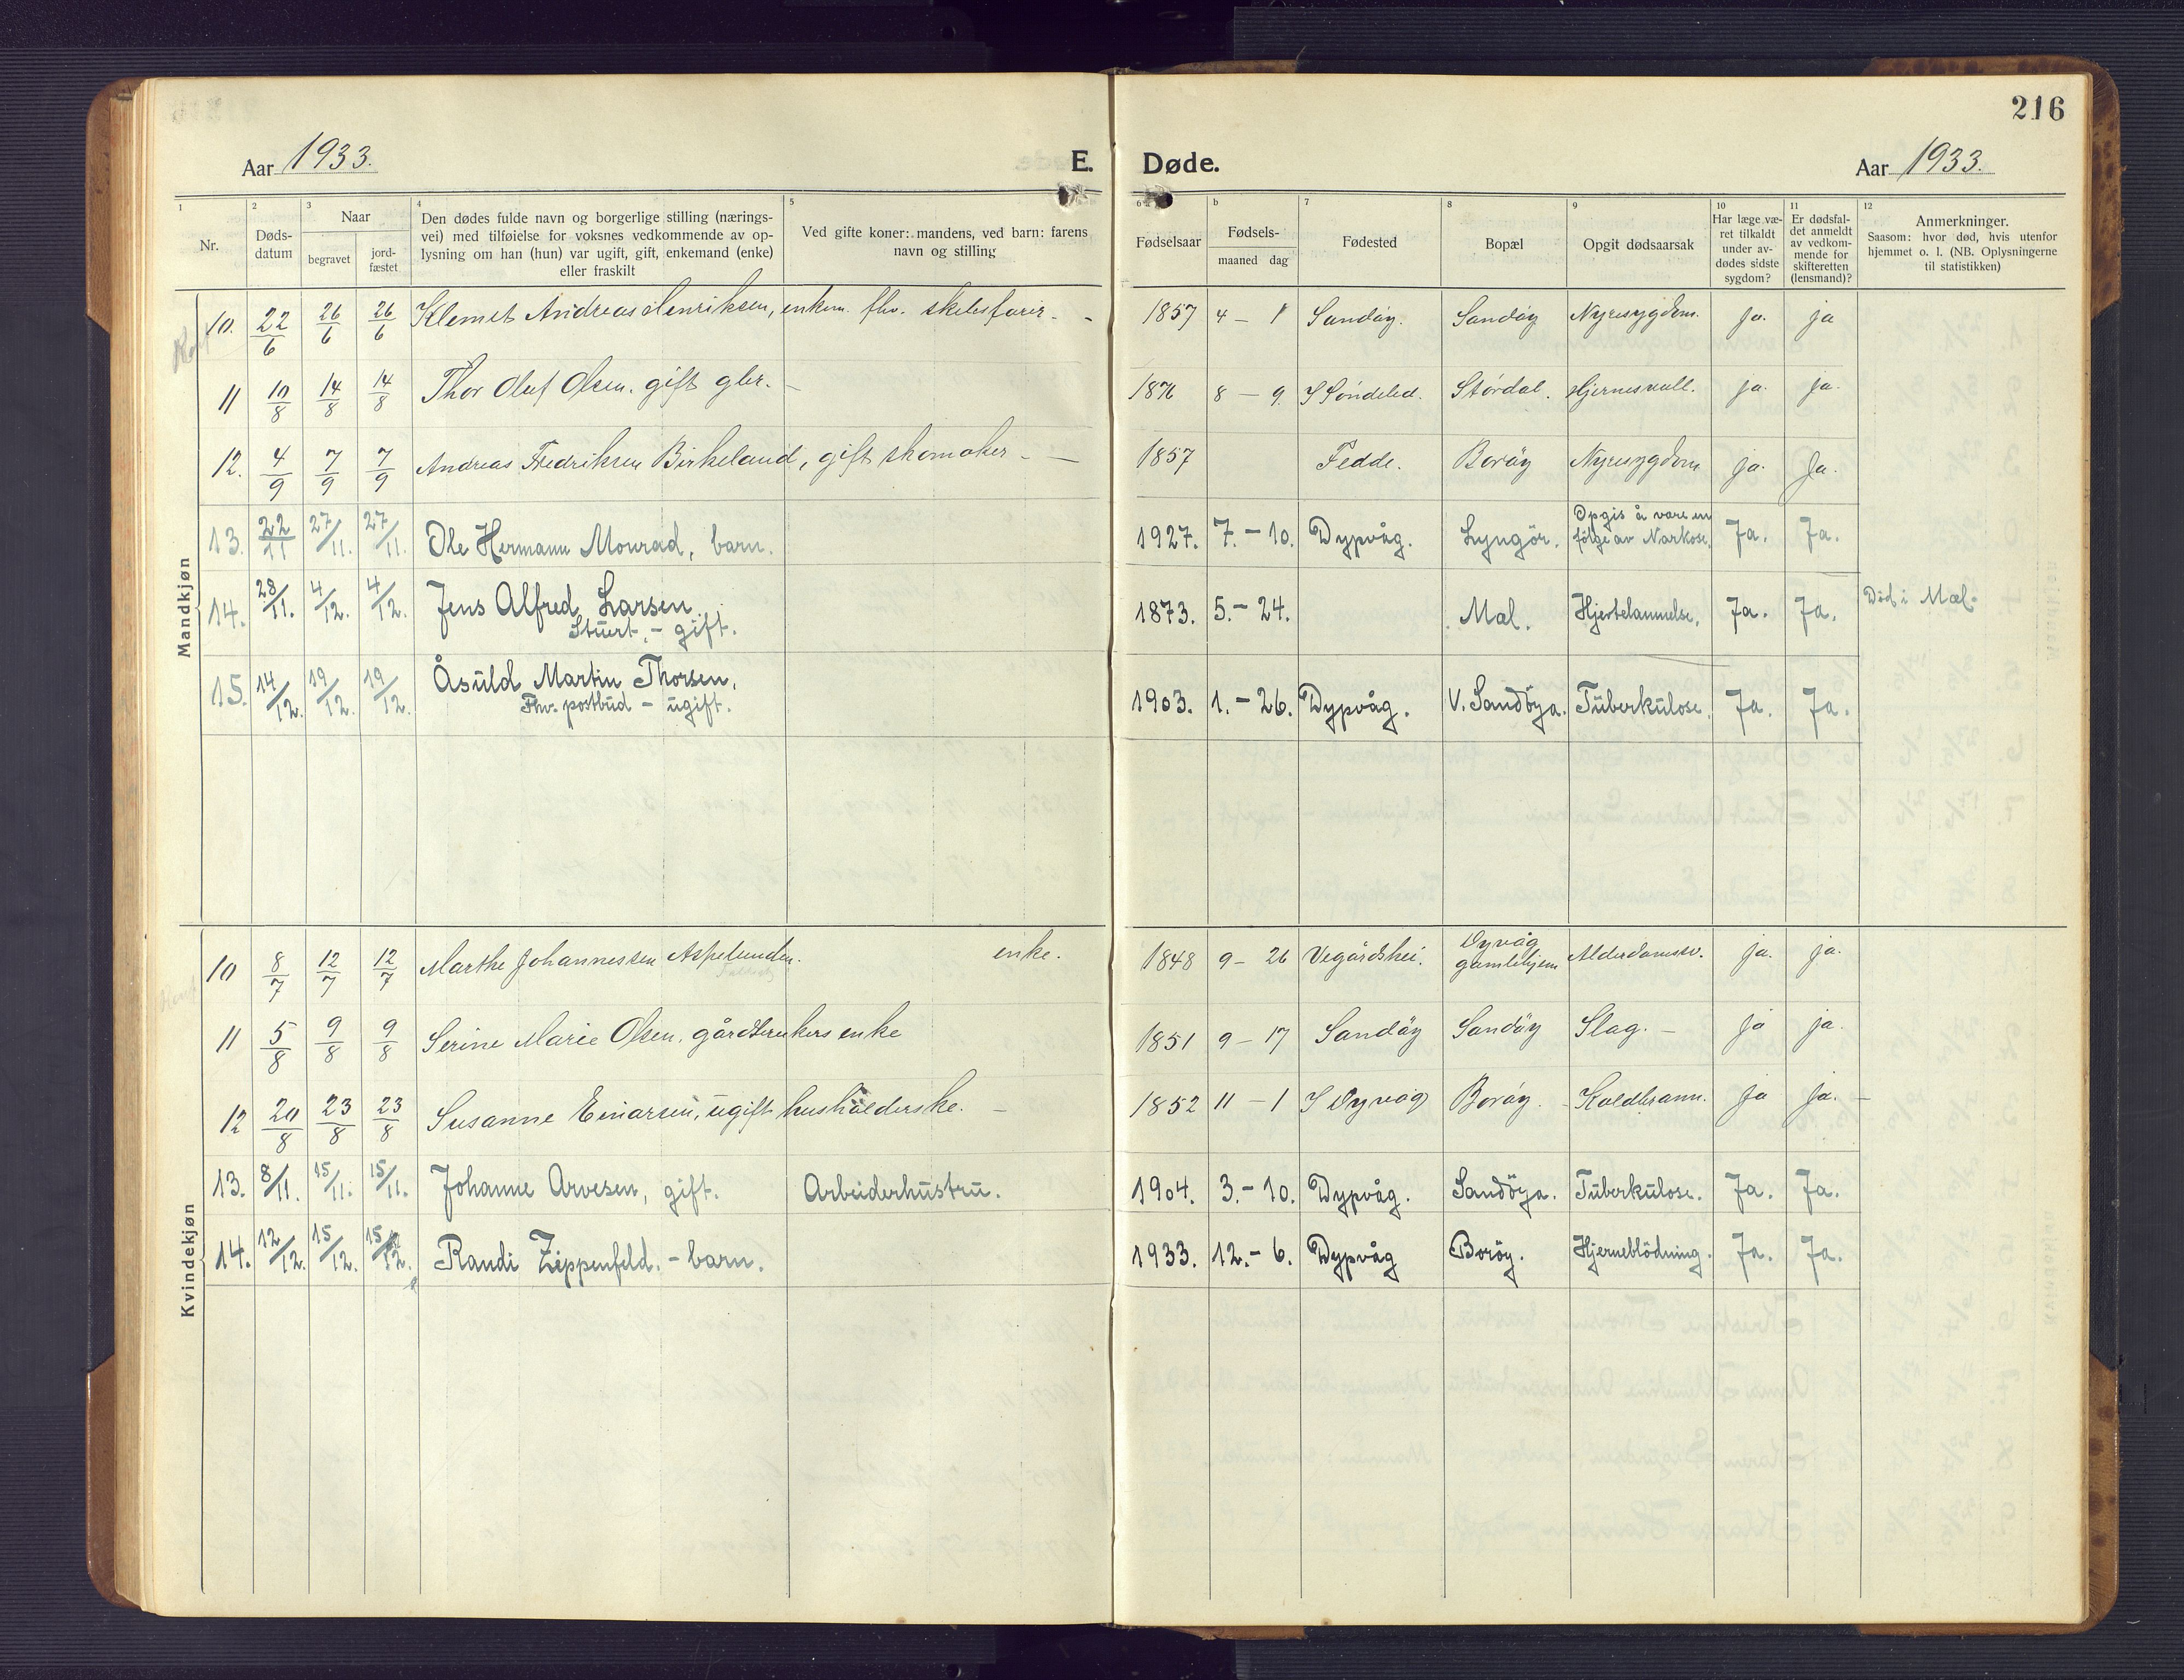 216
Aar 1933.
E. Døde.
Aar 1933.
1
Nr.
2
Døds-
datum
3
Naar
begravet
jord-
fæstet
4
Den dødes fulde navn og borgerlige stilling (nærings-
vei) med tilføielse for voksnes vedkommende av op-
lysning om han (hun) var ugift, gift, enkemand (enke)
eller fraskilt
5
Ved gifte koner: mandens, ved barn: farens
navn og stilling
6 a
Fødselsaar
b
Fødsels-
maaned dag
7
Fødested
8
Bopæl
9
Opgit dødsaarsak
10
Har læge væ-
ret tilkaldt
under av-
dødes sidste
sygdom?
11
Er dødsfal-
det anmeldt
av vedkom-
mende for
skifteretten
(lensmand)?
12
Anmerkninger.
Saasom: hvor død, hvis utenfor
hjemmet o. l. (NB. Oplysningerne
til statistikken)
Mandkjøn
10. 22/6 26/6 26/6 Klemet Andreas Henriksen, enkem. fhv. skibsfører. - 1857 4 - 1 Sandøy. Sandøy Nyresygdom. ja. ja
11 10/8 14/8 14/8 Thor Oluf Olsen. gift gbr. - 1876 8 - 9 S Søndeled. Størdal. Hjernesvull. ja. ja.
12. 4/9 7/9 7/9 Andreas Fredriksen Birkeland, gift skomaker - - 1857 Fedde. Borøy Nyresygdom ja. Ja.
13. 22/11 27/11. 27/11. Ole Hermann Mourad, barn. 1927. 7. - 10. Dypvåg. Lyngör. Opgis å være en
følge av Narkose. Ja. Ja.
14. 28/11. 4/12. 4/12. Jens Alfred Larsen
Stuert. - gift. 1873. 5. - 24. Mal. Hjertelammelse. Ja. Ja. Död i Mal.
15. 14/12. 19/12. 19/12. Åsuld Martin Thorsen,
Fhv. postbud - ugift. 1903. 1. - 26. Dypvåg. V. Sandöya. Tuberkulose. Ja. Ja.
Kvindekjøn
10 8/7 12/7 12/7 Marthe Johannessen Aspelunden. enke. 1848 9 - 26 Vegårdshei. Dyvåg
gamlehjem Alderdomssv. ja. ja.
11 5/8 9/8 9/8 Serine Marie Olsen. gårdbrukers enke 1851 9 - 17 Sandøy Sandøy Slag. - ja ja.
12 20/8 23/8 23/8 Susanne Einarsen, ugift husholderske. - 1852 11 - 1 S Dyvåg Borøy. - Koldbrann. ja ja. -
13. 8/11. 15/11. 15/11. Johanne Arvesen, gift. Arbeiderhustru. 1904. 3. - 10. Dypvåg. Sandöya. Tuberkulose. Ja. Ja.
14. 12/12. 15/12. 15/12. Randi Zippenfeld. - barn. 1933. 12. - 6. Dypvåg Boröy. Hjerneblödning. Ja. Ja.